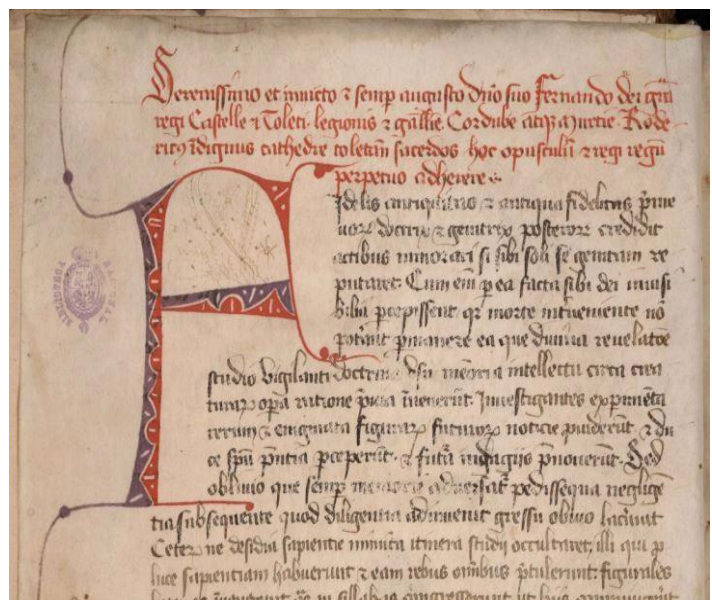 Serenissimo et inuicto ⁊ semp augusto dño suo Fernando dei gr̃a
regi Castelle ⁊ Toleti. legionis ⁊ gallie. Cordube atq; Murtie. Rode
ricꝰ ĩdignus cathedre toletañ sacerdos hoc opusculũ ⁊ regi regũ
perpetuo adherere
Fidelis antiquitas ⁊ antiqua fidelitas p̃me
uoꝝ doctrix ⁊ genitrix posteroꝝ credidit
actibus minorari si sibi soli se genitam re
putaret. Cum em̃ ꝑ ea facta sibi dei inuisi
bilia ꝑcepissent. qꝛ morte interueniente nõ
poterãt ꝑmanere ea que diuina reuelatõe
studio vigilanti doctrine meoria intellectu circa crea
turaꝝ oꝑa ratione p̃uia ĩuenerũt. Inuestigantes experimẽta
rerum ⁊ enigmata figuraꝝ futuroꝝ noticie p̃uiderũt. ⁊ du
ce spũ p̃ntia ꝑceperũt. ⁊ futã p̃nouerũt. Sed
obliuio que semp memorie aduersat̃ pedissequa neglige
tia subsequente quod diligentia adinuenit gressu obliuio
Ceterꝝ ne desidia sapientie inimica itinera studij occultaret. illi qui ꝓ
luce sapientiam habuerunt ⁊ eam rebus omĩbus p̃tulerunt. figurales
in sillabas congresserunt ut hiis